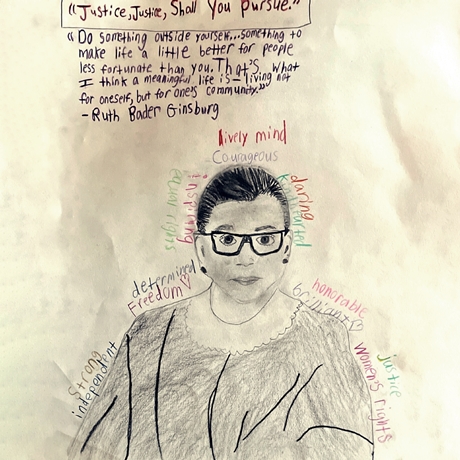 "Justice, Justice, Shall You pursue."
"Do something outside yourself...something to
make life a little better for people
less fortunate than you. That's what
I think a meaningful life is - living not
for oneself, but for one's community."
- Ruth Bader Ginsburg
lively mind
Courageous
inspiring
equal rights
daring
determined
Freedom
honorable
brilliant
Strong
independent
justice
women's rights